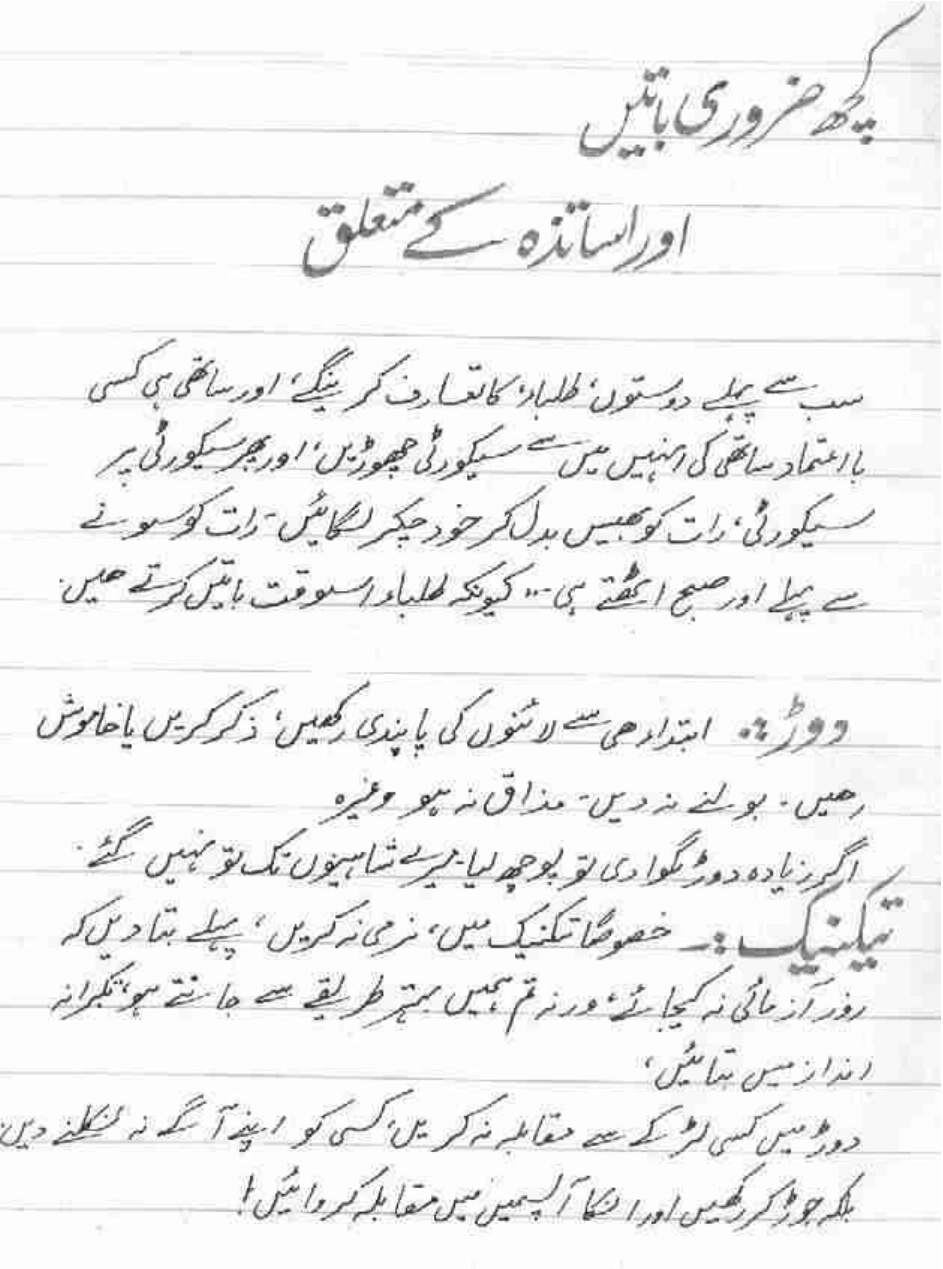 کچھ ضروری باتیں
اور اساتذہ کے متعلق
سب سے پہلے دوستوں، طلباء، کا تعارف کرینگے، اور ساتھی ہی کسی
بااعتماد ساتھی کی انہیں میں سے سیکورٹی چھوڑیں، اور پھر سیکورٹی پر
سیکورٹی، رات کو بھیس بدل کر خود چکر لگائیں۔ رات کو سونے
سے پہلے اور صبح اٹھتے ہی ... کیونکہ طلباء اسوقت باتیں کرتے ھیں۔
دوڑ :۔ ابتداء ھی سے لائنوں کی پابندی رکھیں، ذکر کریں یا خاموش
رھیں۔ بولنے نہ دیں۔ مذاق نہ ہو وغیرہ
اگر زیادہ دوڑ لگوادی تو پوچھ لیا۔ میرے شاہینوں تک تو نہیں گئے۔
تیکنیک :۔ خصوصاً تکنیک میں، نرمی نہ کریں، پہلے بتا دیں کہ
زور آزمائی نہ کیجائے، ورنہ تم ہمیں بہتر طریقے سے جانتے ہو، تکبرانہ
انداز میں بتائیں،
دوڑ میں کسی لڑکے سے مقابلہ نہ کریں، کسی کو اپنے آگے نہ نکلنے دیں
بلکہ جوڑ کر رکھیں اور انکا آپسمیں میں مقابلہ کروائیں!